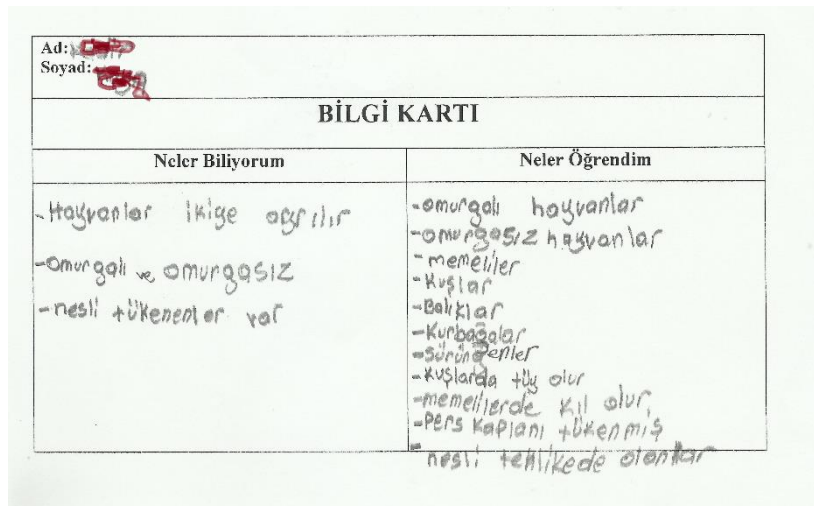 Ad:
Soyad:
BİLGİ KARTI
Neler Biliyorum
- Hayvanlar ikiye ayrılır
- Omurgalı ve omurgasız
- nesli tükenenler var
Neler Öğrendim
- omurgalı hayvanlar
- omurgasız hayvanlar
- memeliler
- Kuşlar
- Balıklar
- Kurbağalar
- Sürüngenler
- Kuşlarda tüy olur
- memelilerde kıl olur,
- Pers Kaplanı tükenmiş
- nesli tehlikede olanlar